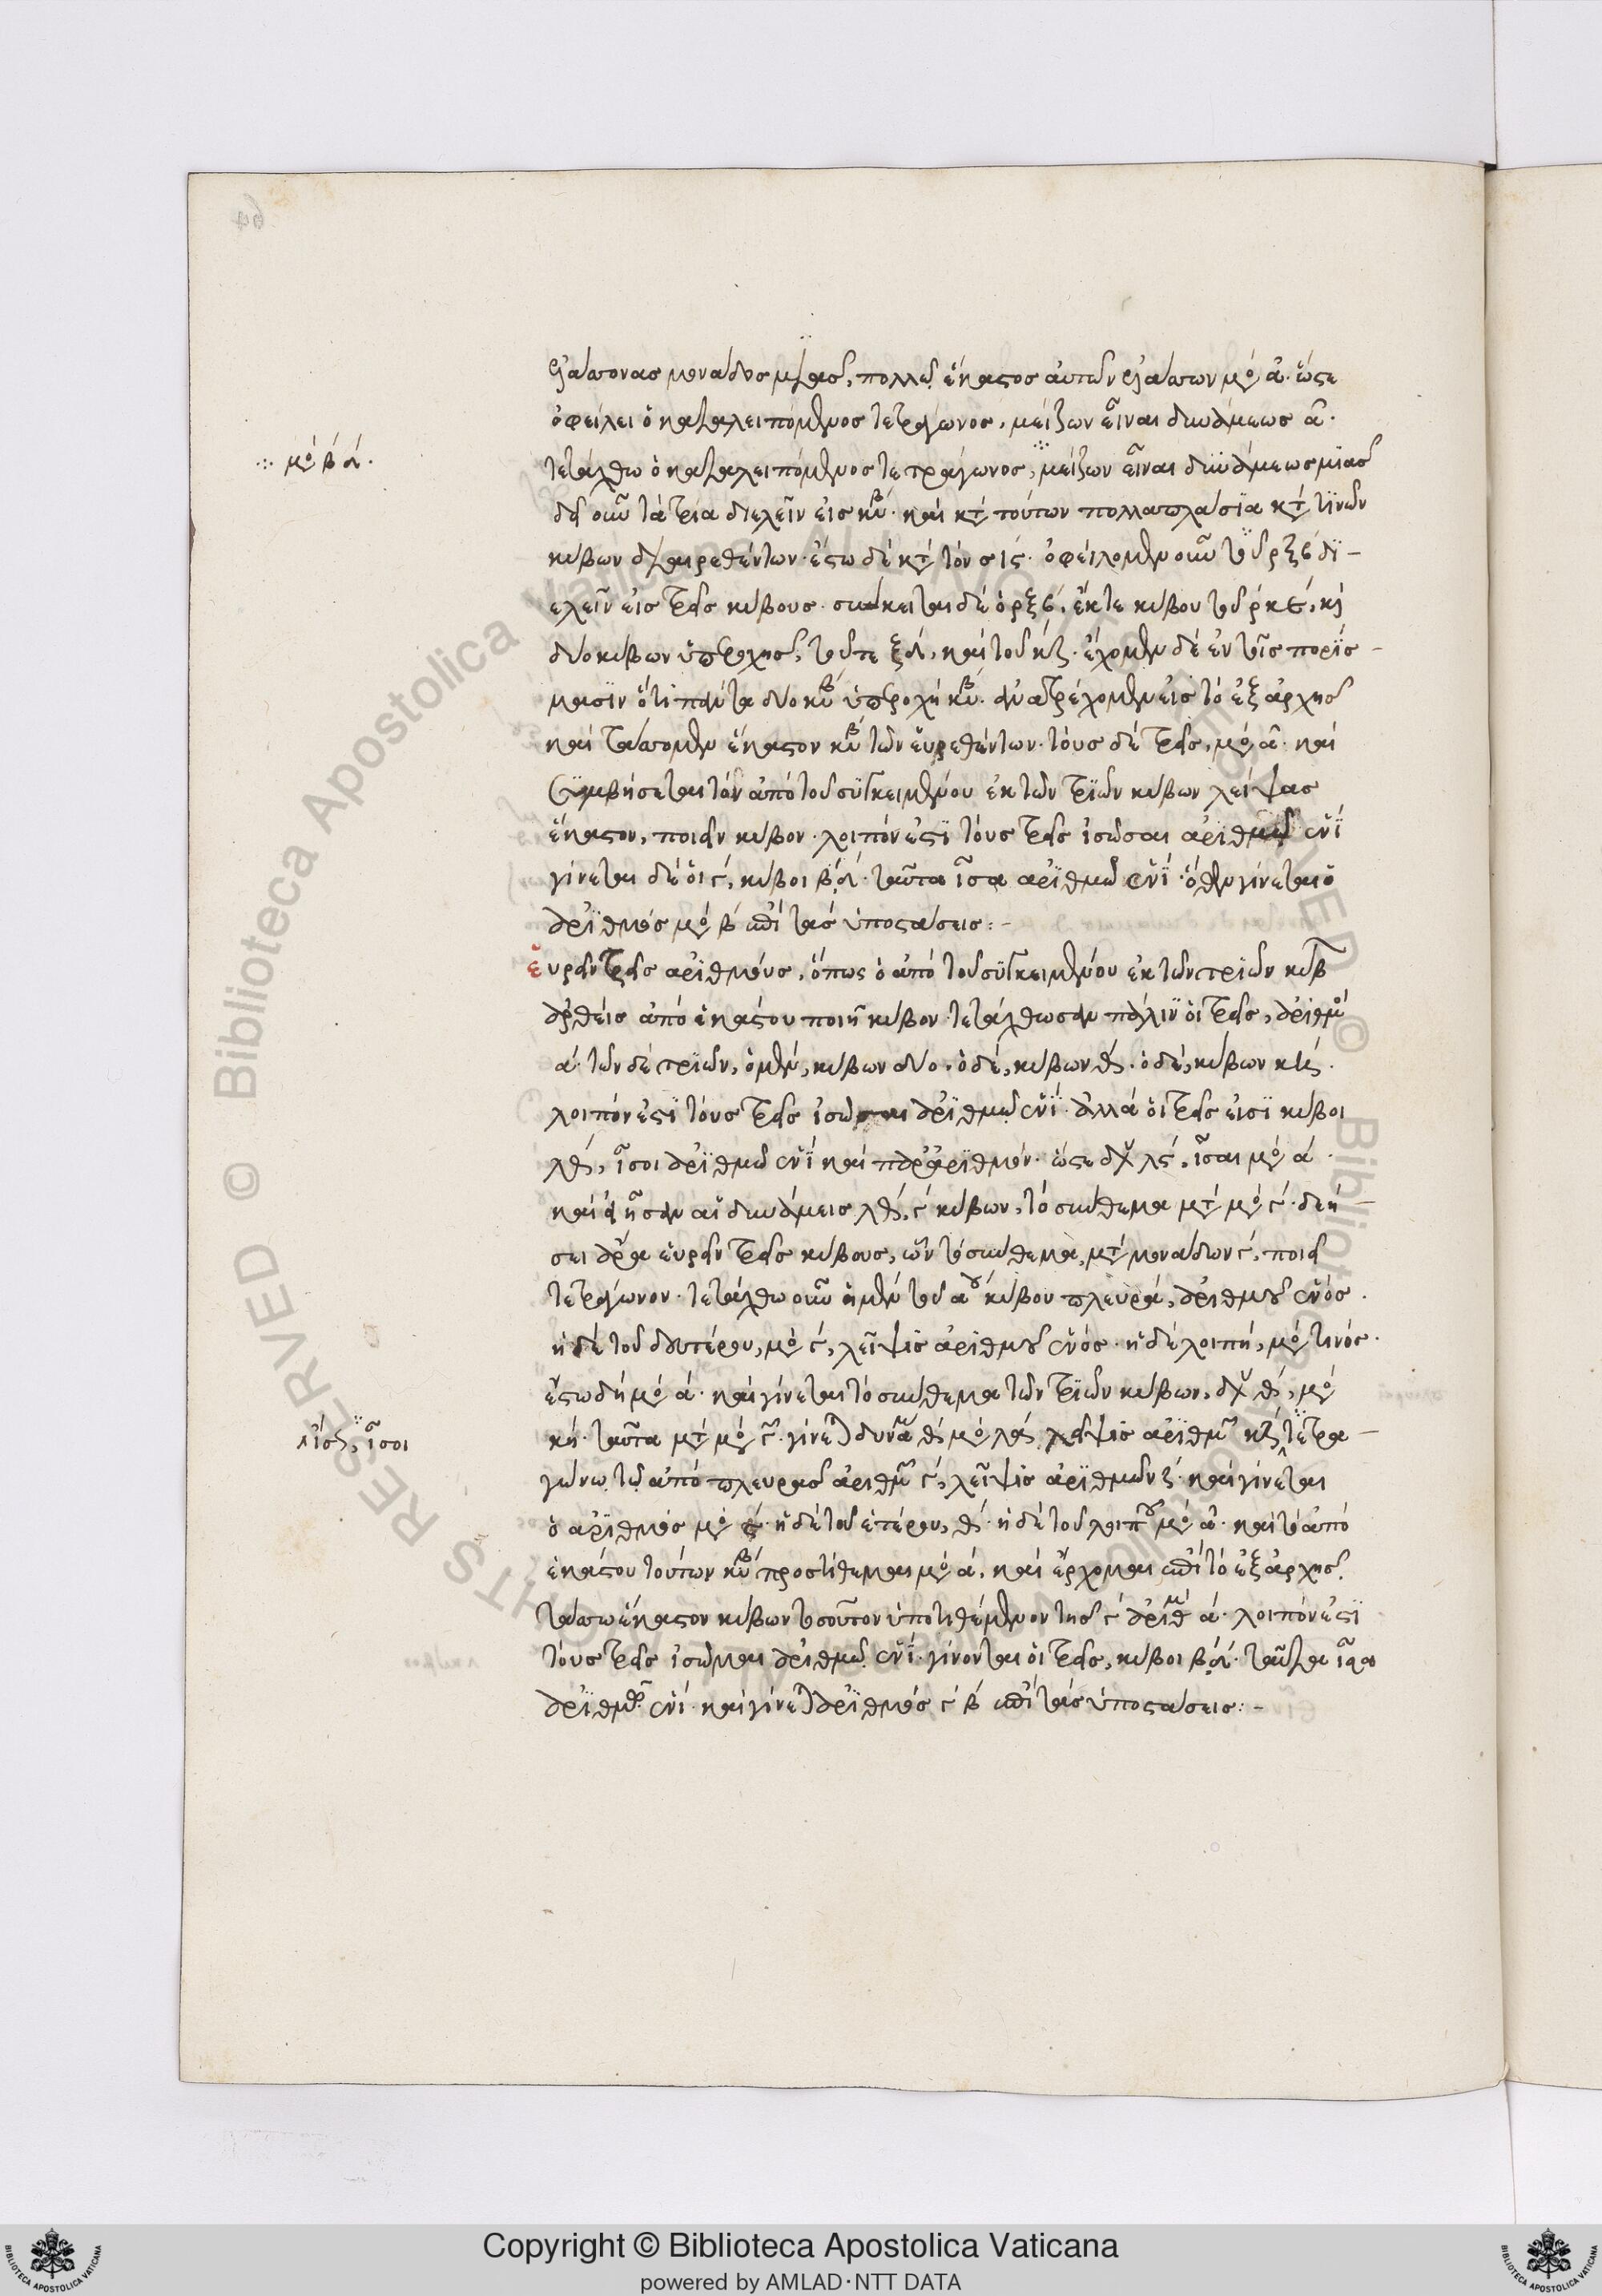 ἐλάσσονας μονάδος μιᾶς, πολλῷ ἕκαστος αὐτῶν ἐλάσσων μο ά. ὥστε
ὀφείλει ὁ καταλειπόμενος τετράγωνος, μείζων εἶναι δυνάμεως α.
∴ μο β δ.
τετάχθω ὁ καταλειπόμενος τετράγωνος, μείζων εἶναι δυνάμεως μιᾶς
δεῖ οὖν τὰ τρία διελεῖν εἰς κυβ. καὶ κτ τούτων πολλαπλάσια κτ τινῶν
κύβων διαιρεθέντων. ἔστω δὲ κτ τὸν σις. ὀφείλομεν οὖν τὸν ρξβ δι-
ελεῖν εἰς τρεῖς κύβους. σύγκειται δὲ ὁ ρξβ, ἔκ τε κύβου τοῦ ρκε, κὶ
δύο κύβων ὑπεροχῆς, τοῦ τε ξδ, καὶ τοῦ κζ. ἔχομεν δὲ ἐν τοῖς πορίσ-
μασιν ὅτι πάντα δύο κυβ ὑπεροχὴ κυβ. ἀνατρέχομεν εἰς τὸ ἐξ ἀρχῆς
καὶ τάσσομεν ἕκαστον κυβ τῶν εὑρεθέντων. τοὺς δὲ τρεῖς, μο α. καὶ
συμβήσεται τὸν ἀπὸ τοῦ συγκειμένου ἐκ τῶν τριῶν κύβων λείψας
ἕκαστον, ποιεῖν κύβον. λοιπόν ἐστι τοὺς τρεῖς ἰσῶσαι ἀριθμῷ ἑνὶ
γίνεται δὲ οἱ γ, κύβοι β δ. ταῦτα ἴσα ἀριθμῷ ἑνί. ὅθεν γίνεται ὁ
ἀριθμὸς μο β ἐπὶ τὰς ὑποστάσεις:-
εὑρεῖν τρεῖς ἀριθμοὺς, ὅπως ὁ ἀπὸ τοῦ συγκειμένου ἐκ τῶν τριῶν κυβ
ἀρθεὶς ἀπὸ ἑκάστου ποιῇ κύβον. τετάχθωσαν πάλιν οἱ τρεῖς, ἀριθμοῦ
ά. τῶν δὲ τριῶν, ὁ μὲν, κύβων δύο. ὁ δὲ, κύβων θ. ὁ δὲ, κύβων κη.
λοιπόν ἐστι τοὺς τρεῖς ἰσῶσαι ἀριθμῷ ἑνί. ἀλλὰ οἱ τρεῖς εἰσι κύβοι
λθ, ἴσοι ἀριθμῷ ἑνὶ καὶ παρὰ ἀριθμόν. ὥστε δυ λθ, ἴσαι μο ά.
καὶ ἦσαν αἱ δυνάμεις λθ, γ κύβων, τὸ σύνθεμα μτ μο γ. δεή-
σει ἄρα εὑρεῖν τρεῖς κύβους, ὧν τὸ σύνθεμα, μτ μονάδων γ, ποιεῖ
τετράγωνον. τετάχθω οὖν ἡ μὲν τοῦ αου κύβου πλευρὰ, ἀριθμοῦ ἑνός.
ἡ δὲ τοῦ δευτέρου, μο γ, λεῖψις ἀριθμοῦ ἑνός. ἡ δὲ λοιπὴ, μο τινός.
ἔστω δὴ μο ά. καὶ γίνεται τὸ σύνθεμα τῶν τριῶν κύβων, δυ θ, μο
λεῖς, ἴσοι
κη. ταῦτα μτ μο γ. γίνεται δυνα θ μο λα λεῖψις ἀριθμ κζ τετρα-
γώνῳ τῷ ἀπὸ πλευρᾶς ἀριθμ γ, λεῖψις ἀριθμῶν ζ. καὶ γίνεται
ὁ ἀριθμὸς μο ς. ἡ δὲ τοῦ ἑτέρου, θ. ἡ δὲ τοῦ λοιποῦ μο α. καὶ τὸ ἀπὸ
ἑκάστου τούτων κυβ προστίθεμαι μο ά, καὶ ἔρχομαι ἐπὶ τὸ ἐξ ἀρχῆς.
τάσσω ἕκαστον κύβων τοσοῦτον ὑποτιθέμενον τῆς γ ἀριθμ ά. λοιπόν ἐστι
τοὺς τρεῖς ἰσῶσαι ἀριθμῷ ἑνί. γίνονται οἱ τρεῖς, κύβοι β δ. ταῦτα ἴσα
ἀριθμῷ ἑνί. καὶ γίνεται ἀριθμὸς γ β ἐπὶ τὰς ὑποστάσεις:-
Copyright © Biblioteca Apostolica Vaticana
powered by AMLAD·NTT DATA